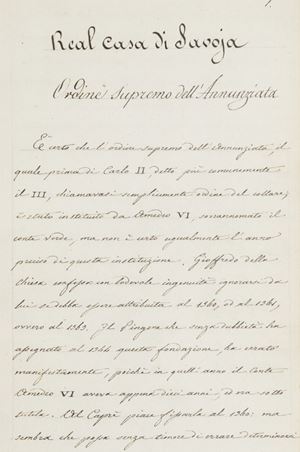 Real Casa di Savoja
Ordine supremo dell'Annunziata
È certo che l'ordine supremo dell'Annunziata, il
quale prima di Carlo II, detto più comunemente
il III, chiamavasi semplicemente ordine del collare,
è stato instituito da Amedeo VI, soprannomato il
conte verde, ma non è certo ugualmente l'anno
preciso di questa instituzione. Gioffredo della
Chiesa confessa con lodevole ingenuità ignorare da
lui se debba essere attribuita al 1360, od al 1361,
ovvero al 1363. Il Pingone che senza dubbietà ha
assegnato al 1344 questa fondazione, ha errato
manifestamente, poichè in quell'anno il conte
Amedeo VI aveva appena dieci anni, ed era sotto
tutela. Al Capré piace fissarla al 1360: ma
sembra che possa senza timore di errare determinarsi